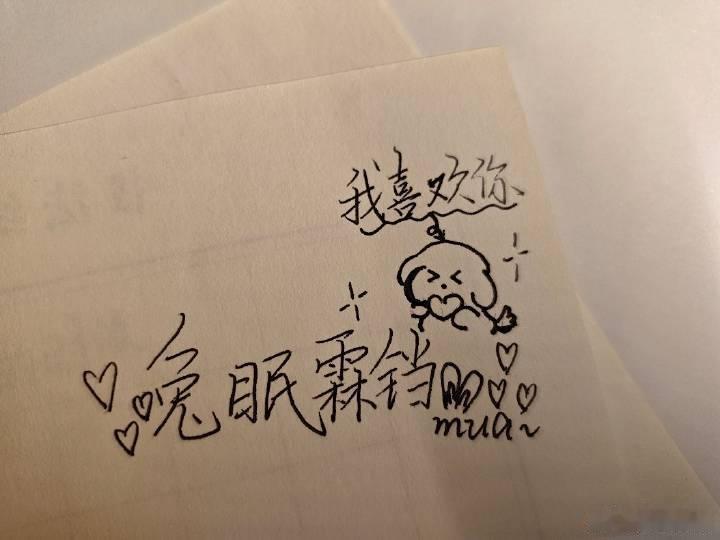 我喜欢你
兔眠霖铛
mua~